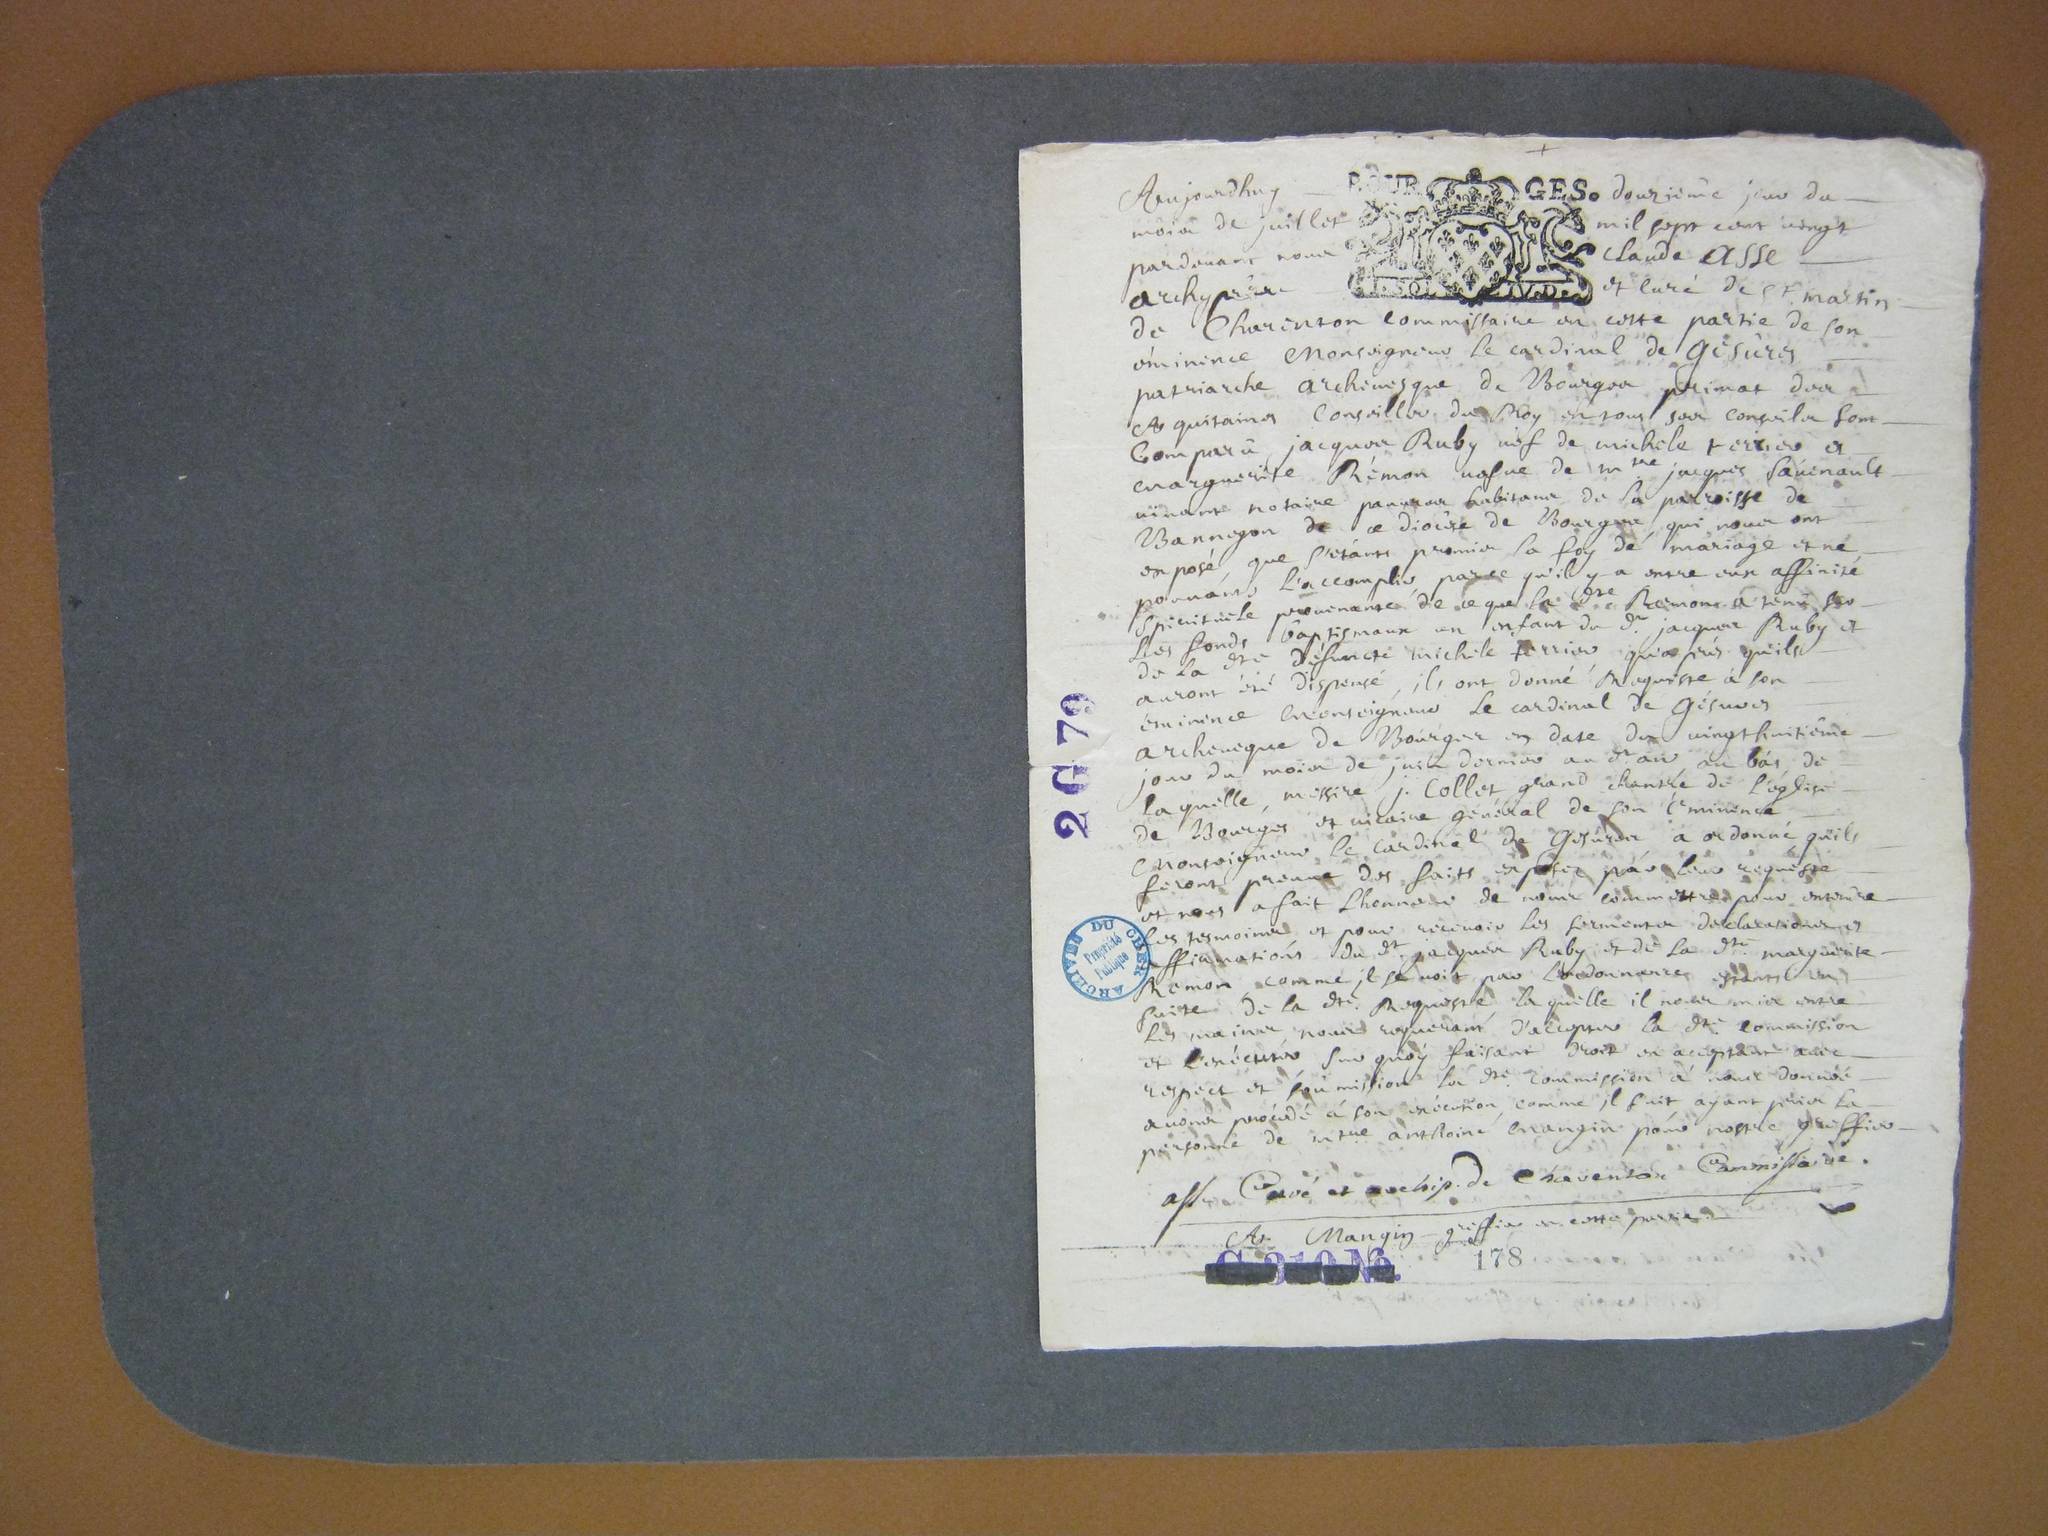 BOURGES.
Aujourdhuy douzieme jour du
mois de juillet mil sept cent vingt
pardevant nous Claude Asse
archyprêtre et curé de St martin
de Charenton Commissaire en cette partie de son
éminence Monseigneur le cardinal de Gesures
patriarche archevesque de Bourges primat des
Aquitaines Conseiller du Roy en tous ses conseils sont
Comparû jacques Ruby vef de michele terrier et
marguerite Rémon vefve de mtre jacques Savenault
vivant notaire pauvres habitans de la parroisse de
Bannegon de ce diocese de Bourges qui nous ont
exposé que s'etants promis la foy de mariage et ne
pouvants l'accomplir parce qu'il y a entre eux affinité
Spirituele provenante de ce que la dte Remon a tenu sur
les fonds baptismaux un enfant du dt jacques Ruby et
de la dte défuncte michele terrier qu'aprés qu'ils
auront été dispensé, ils ont donné Requiste à son
éminence Monseigneur le cardinal de Gésures
archeveque de Bourges en date du vingthuitiême
jour du mois de juin dernier au dt an au bas de
laquelle, messire j. Collet grand chantre de l'église
de Bourges et vicaire général de son Eminence
Monseigneur le cardinal de Gesures a ordonné quils
feront preuve des faits exposez par leur requeste
et nous a fait l'honneur de nous commettre pour entendre
les tesmoins et pour recevoir les serments declarations et
affirmations du dt jacques Ruby et de la dte marguerite
Remon comme il se voit par l'ordonnance estant en
suite de la dte Requeste laquelle il nous mis entre
les mains nous requerant d'accepter la dte commission
et l'exécuter sur quoy faisant droit en aceptant avec
respect et soumission la dte commission à nous donnée
avons procédé à son exécution comme il suit ayant pris la
personne de mtre anthoine mangin pour nostre greffier
asse Curé et archip. de Charenton Commissaire.
An Mangin greffier en cette partie
178
2 G 79
ARCHIVES DU CHER
Propriété
Publique